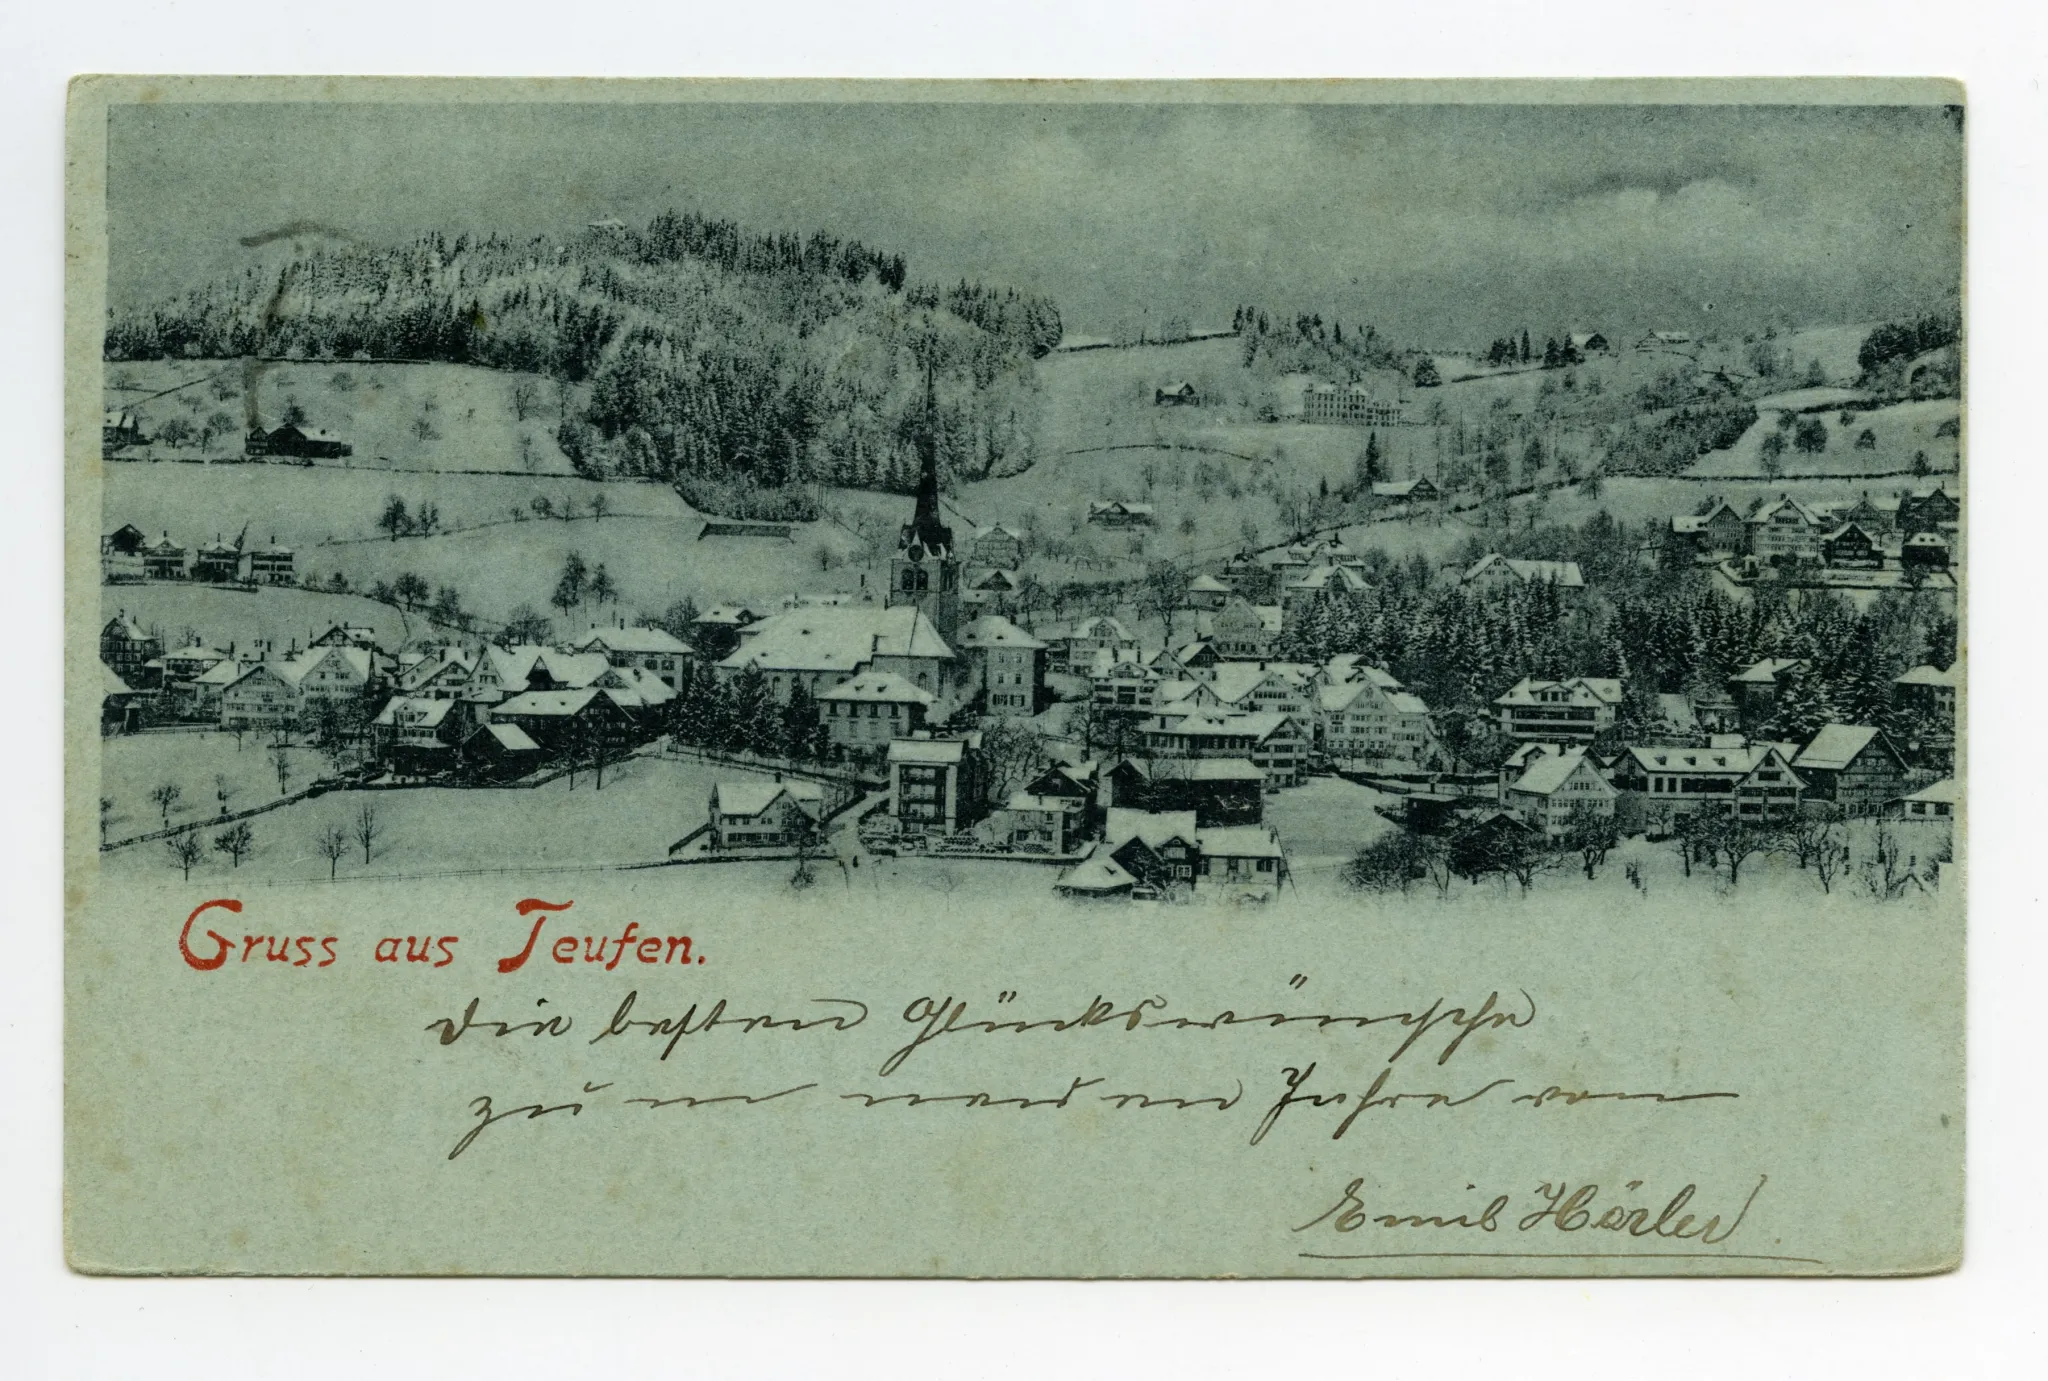 Gruss aus Teufen.
Die besten Glückswünsche
zum neuen Jahre von
Emil Hörler.